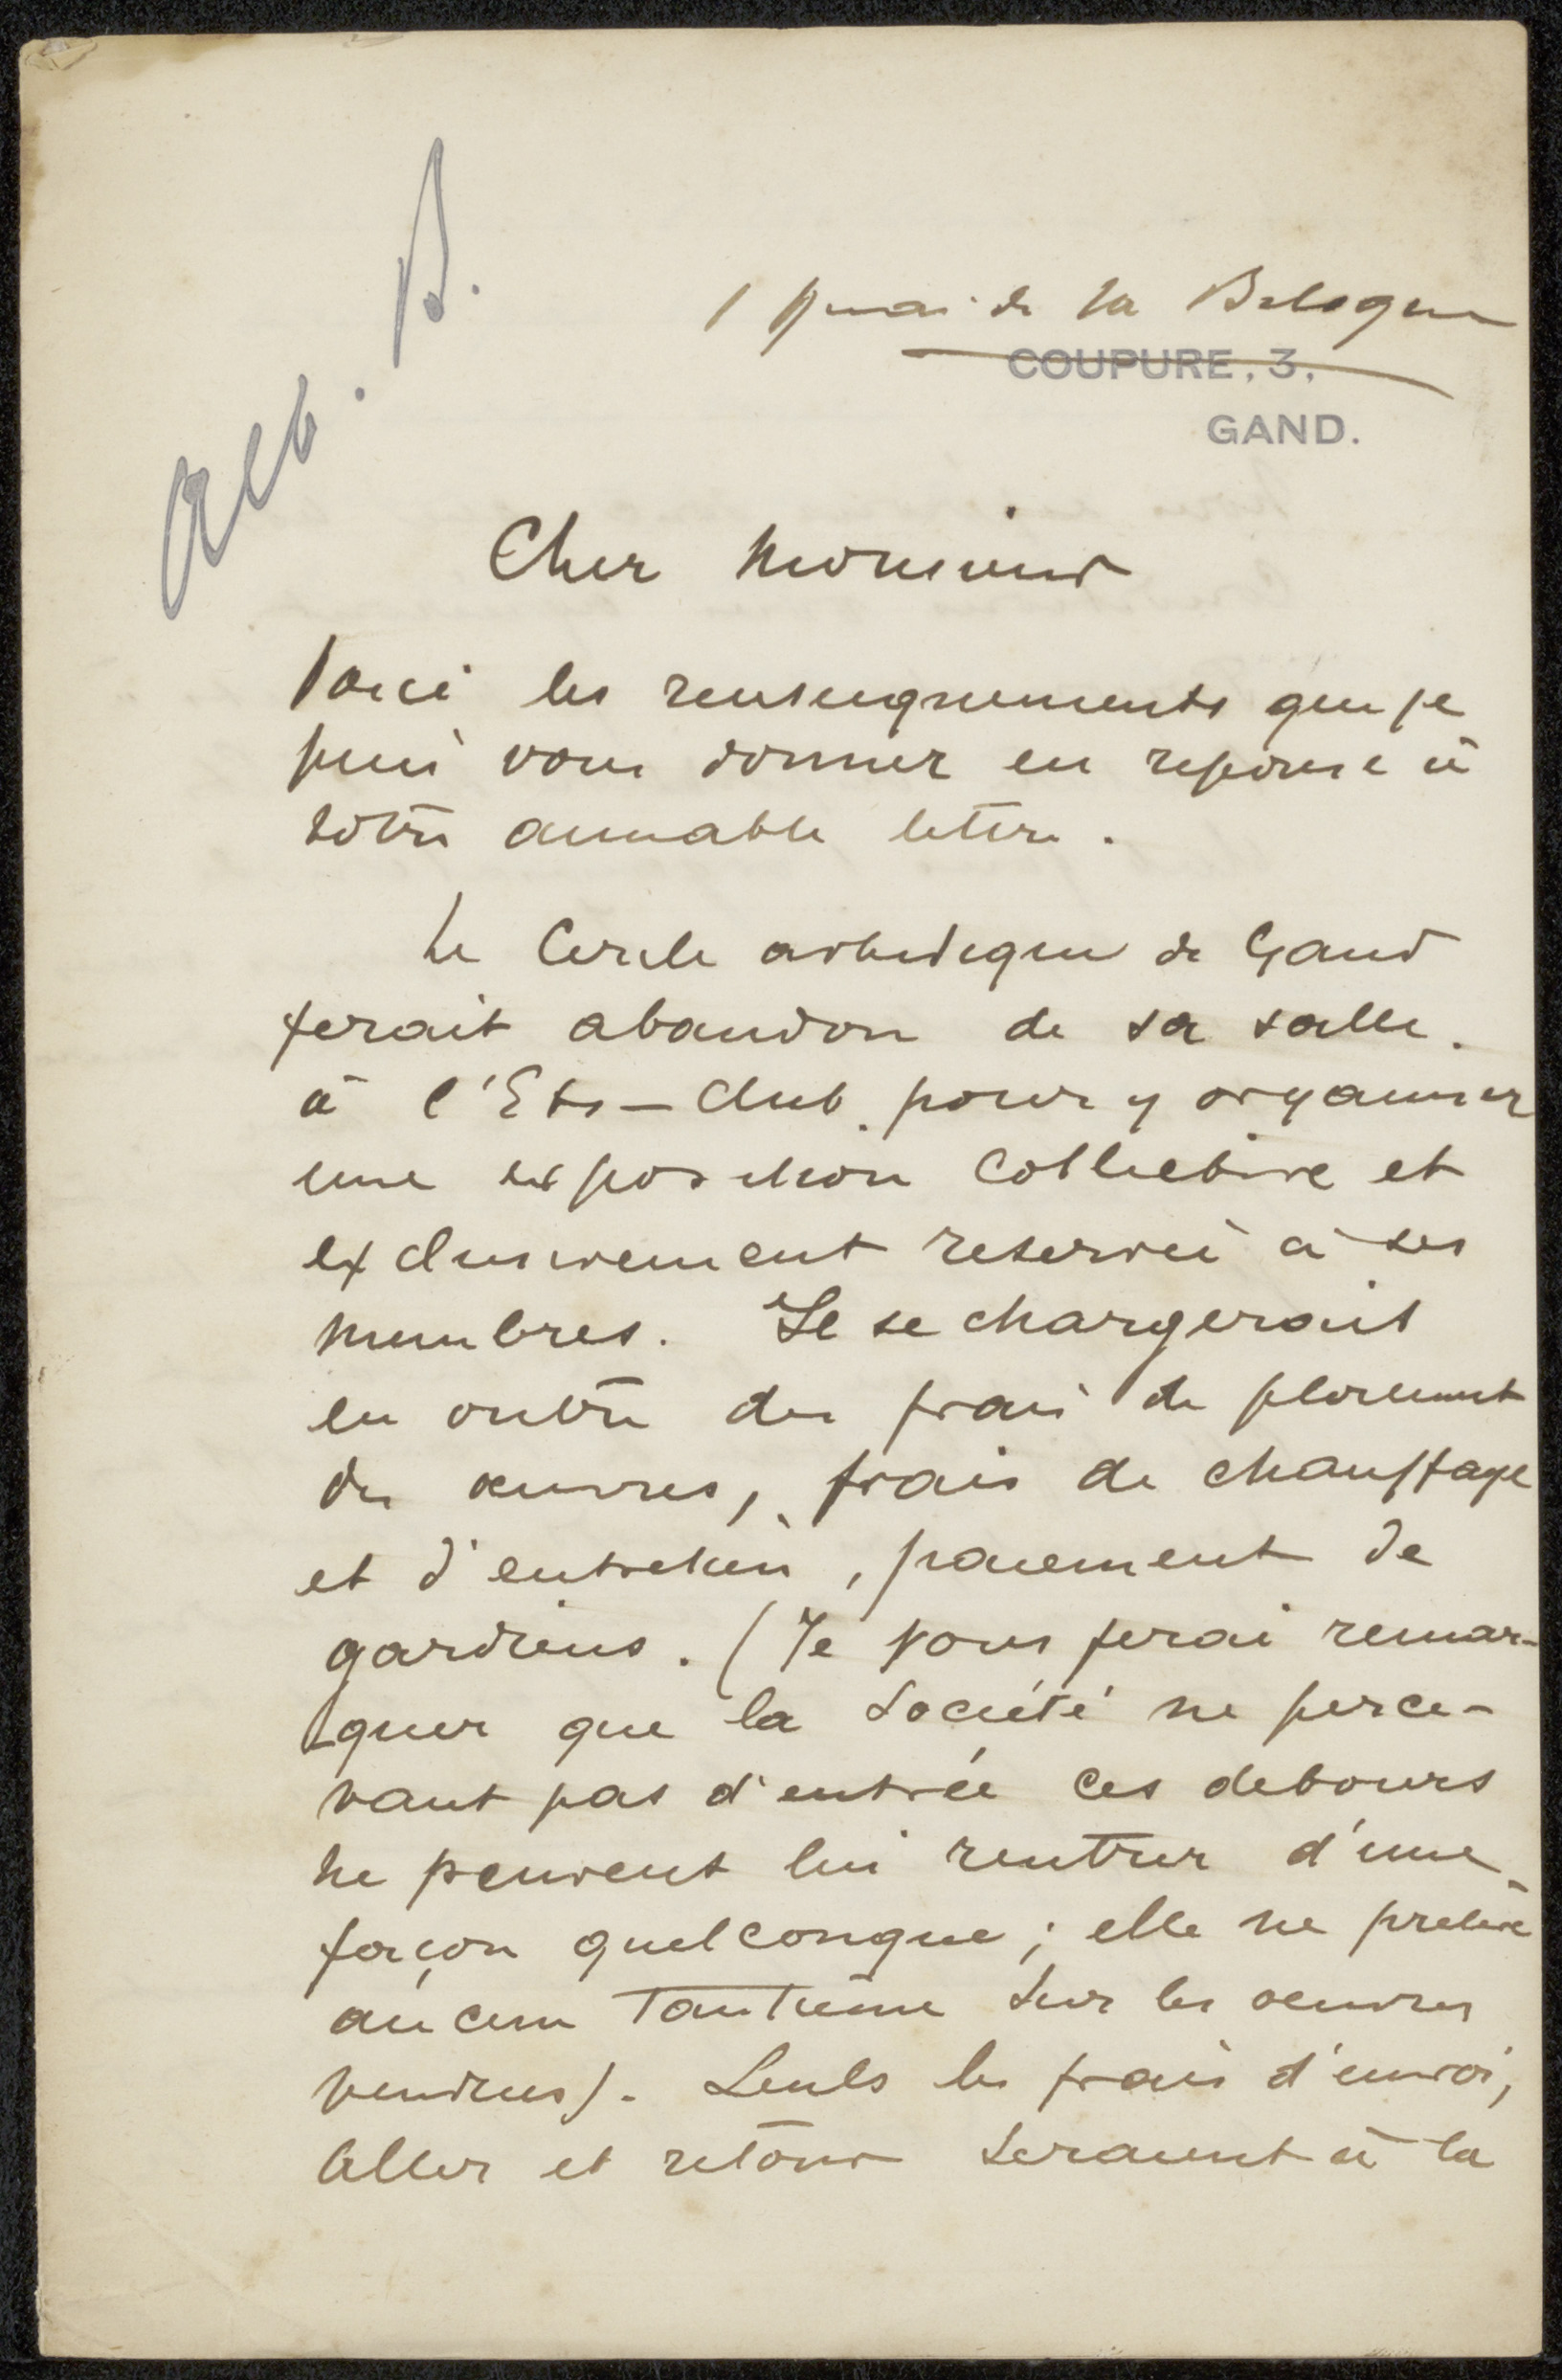 Alb. B.
1 Quai de la
COUPURE, 3,
GAND.
Cher Monsieur
Voici les renseignements que je
puis vous donner en reponse à
votre aimable lettre.
Le Cercle artistique de Gand
ferait abandon de sa salle
à l'Ets-Club pour y organiser
une exposition collective et
exclusivement reservée à ses
membres. Il se chargerait
en outre des frais de placement
des œuvres, frais de chauffage
et d'entretien, paiement de
gardiens. (Je vous ferai remar-
quer que la Société ne perce-
vant pas d'entrée ces debours
ne peuvent lui rentrer d'une
façon quelconque; elle ne prelève
aucun tantième sur les oeuvres
vendues). Seuls les frais d'envoi,
aller et retour seraient à la